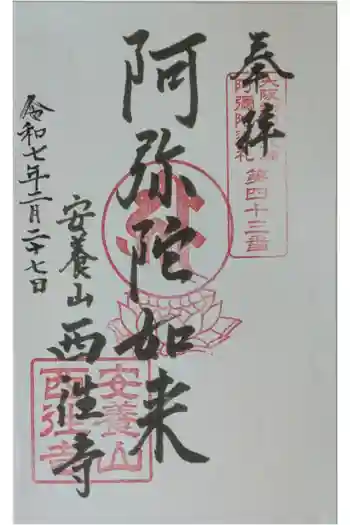 奉拝
第四十三番
阿弥陀如来
安養山
西往寺
令和七年二月二十七日
安養山
西往寺